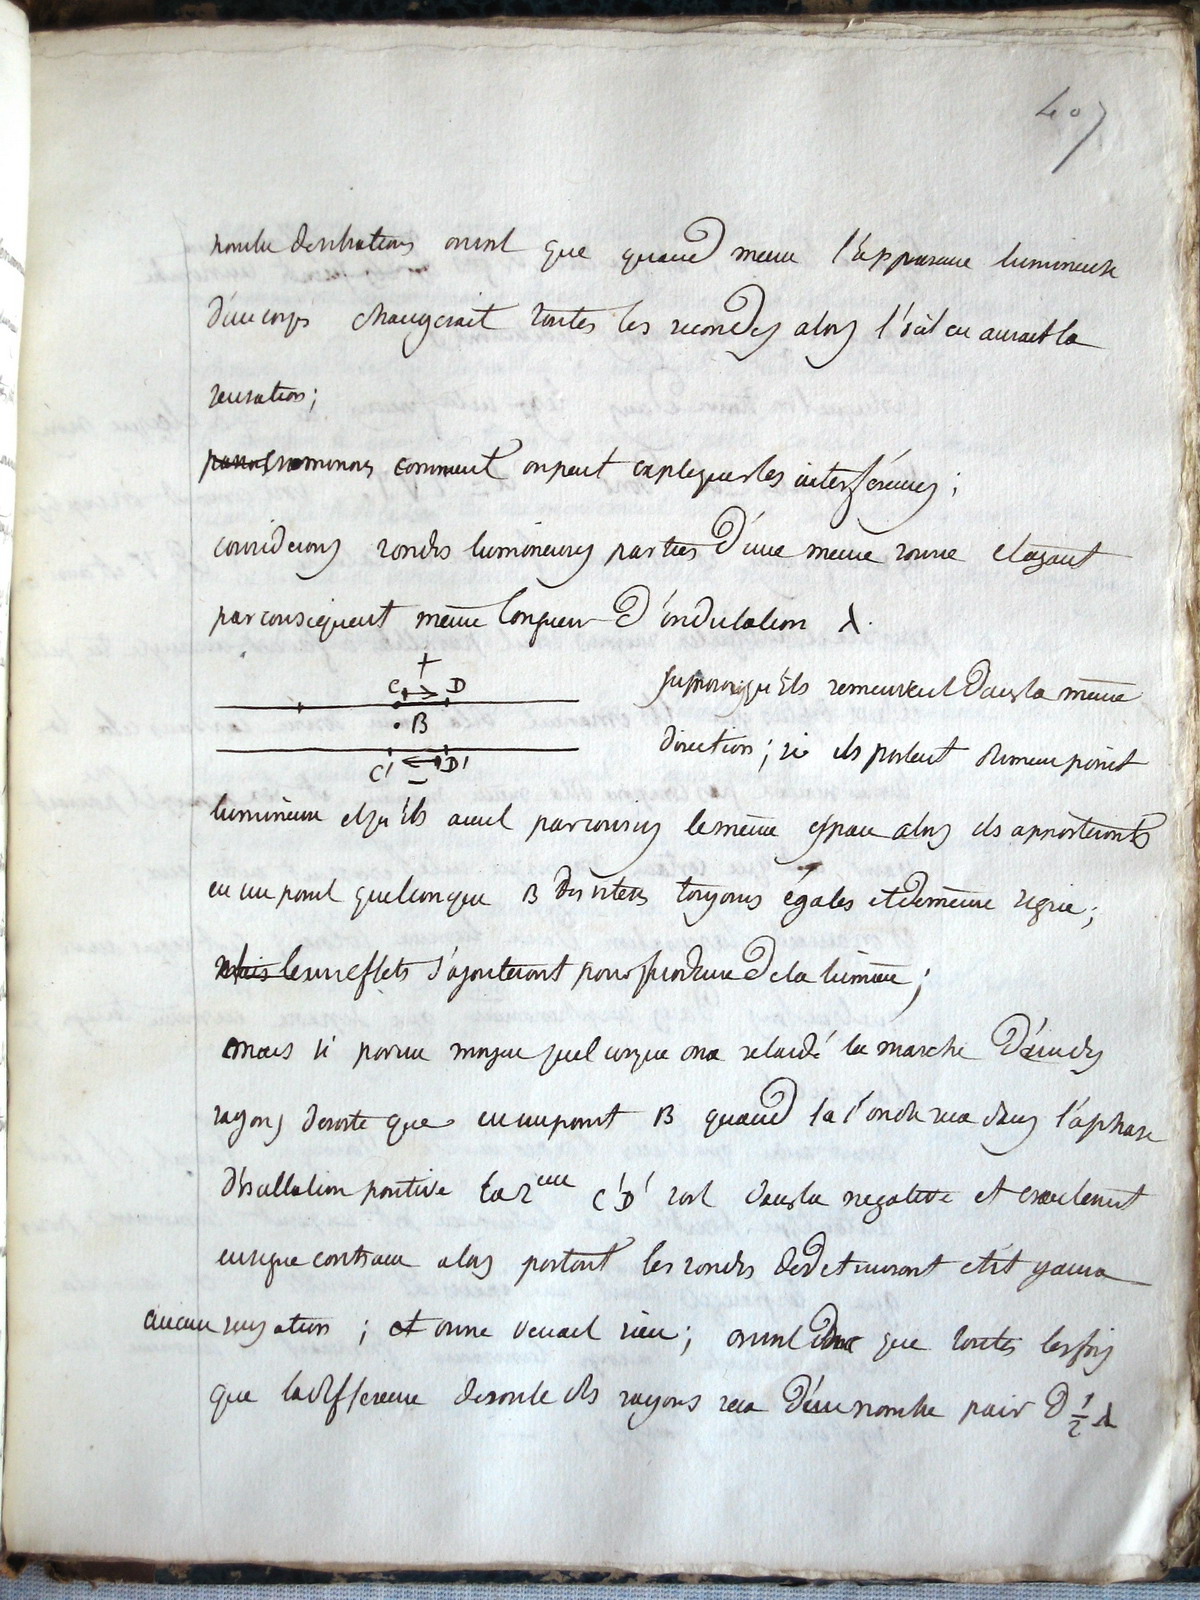 407
nombre de vibrations on voit que quand meme l'apparence lumineuse
d'un corps changerait toutes les secondes alors l'oeil en aurait la
sensation;
comment on peut expliquer les interférences;
considerons 2 ondes lumineuses parties d'une meme source et ayant
par consequent même longueur d'ondulation λ.
+
C D
B
C' D'
−
supposons qu'ils se meuvent dans la même
direction; si ils partent du meme point
lumineux et qu'ils aient parcouru le même espace alors ils apporteront
en un point quelconque B des vitesses toujours égales et de même signe;
leurs effets s'ajouteront pour produire de la lumière;
mais si par un moyen quelconque on a retardé la marche d'un des
rayons de sorte que en un point B quand la 1ere onde sera dans la phase
d'oscillation positive la 2eme C'D' soit dans la negative et exactement
en signe contraire alors partout les 2 ondes se detruiront et il y aura
aucune sensation; et on ne verrait rien; on voit donc que toutes les fois
que la difference de route des rayons sera d'un nombre pair d 1/2 λ